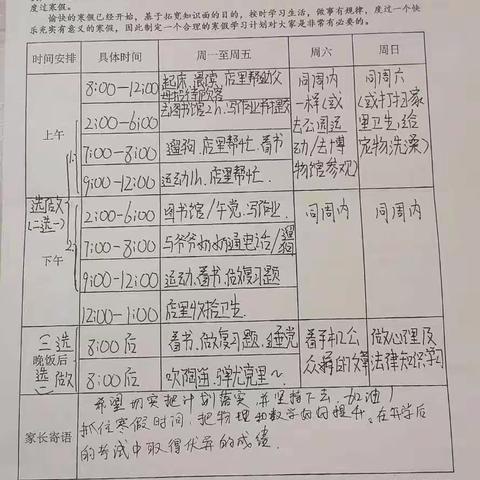 度过寒假。
愉快的寒假已经开始，基于拓宽知识面的目的，按时学习生活，做事有规律，度过一个快
乐充实有意义的寒假，因此制定一个合理的寒假学习计划对大家是非常有必要的。
时间安排 具体时间 周一至周五 周六 周日
上午
8:00-12:00 起床、晨读、店里帮助父
母招待顾客
2:00-6:00 去图书馆2h、写作业书主题文
7:00-8:00 遛狗、店里帮忙、看书
9:00-12:00 运动1h、店里帮忙
同周内
一样(或
去公园运
动/去博
物馆参观)
同周六
(或打扫家
里卫生,给
宠物洗澡)
选做
(二选一)
下午
2:00-6:00 图书馆/午觉、写作业
7:00-8:00 与爷爷奶奶通电话/遛狗
9:00-12:00 运动、看书、做复习题
12:00-1:00 店里收拾卫生
同周内
同周内
二选
晚饭后
选一做
8:00后 看书、做复习题、睡觉
8:00后 吹陶笛、弹尤克里~
看手机公
众号的文章
做心理及
法律知识学习
家长寄语
希望切实把计划落实,并坚持下去,加油!
抓住寒假时间,把物理和数学的问提升,在开学后
的考试中取得优异的成绩.